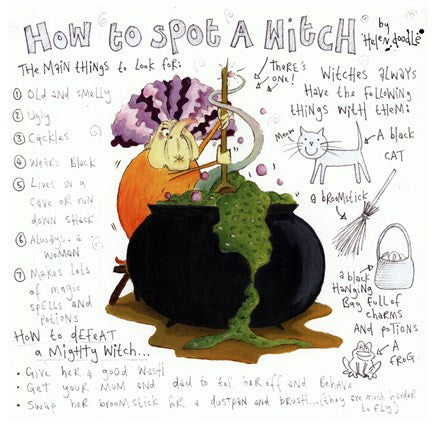 HOW to SPOT A WITCH
by
Helen doodle
The Main things to look for:
① Old and smelly
② Ugly
③ Cackles
④ Wears Black
⑤ Lives in a
cave or run
down shack
⑥ Always a
woman
⑦ Makes lots
of magic
spells and
potions
There's
one!
Witches always
Have the following
things with them:
Meow
A black
CAT
a broomstick
a black
Hanging
Bag full of
charms
And potions
A
FROG
How to defeat
a Mighty Witch...
• Give her a good wash
• Get your Mum and dad to tell her off and Behave
• Swap her broomstick for a dustpan and brush...(they are much harder
to fly)